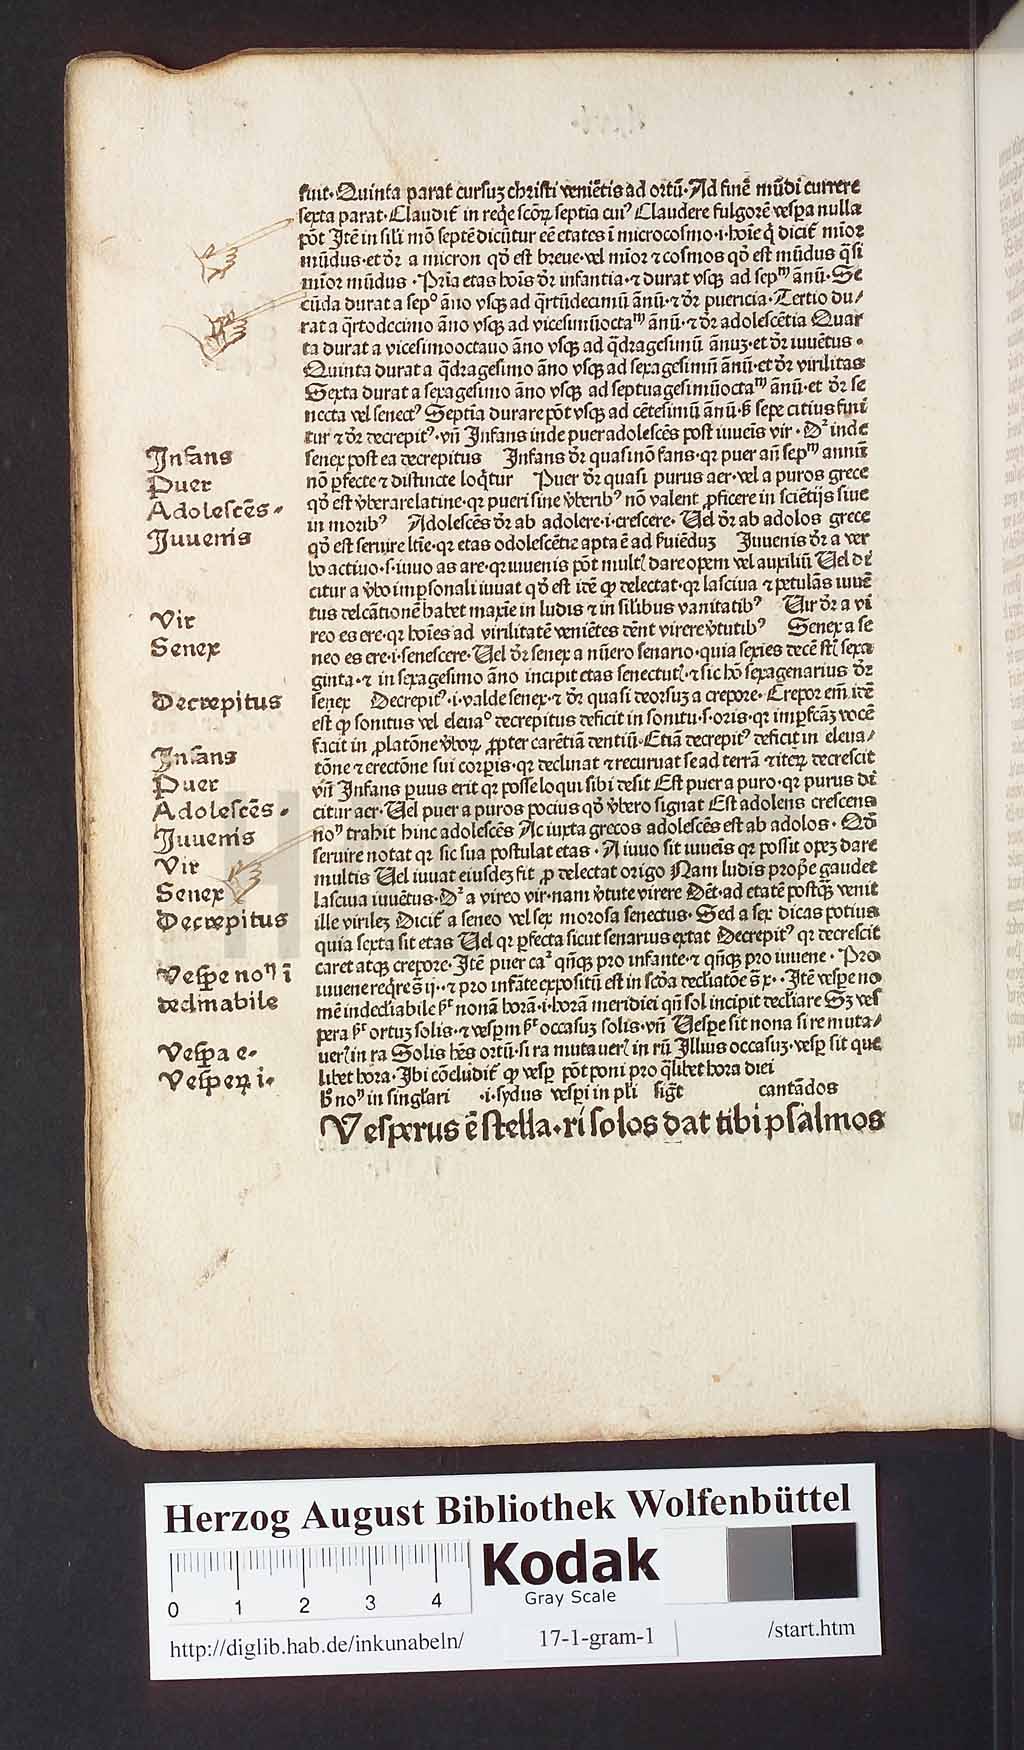 fuit. Quinta parat cursuȝ christi veniētis ad ortū. Ad finē mūdi currere
sexta parat. Claudit̄ in req̄e scōꝝ septīa cuiꝰ Claudere fulgorē vesꝑa nulla
pōt Itē in sili mō septē dicūtur eē etates ī microcosmo .i. hoīe q̄ dicit̄ mīor
mūdus. et dr̄ a micron qd̄ est breue. vel mīor ⁊ cosmos qd̄ est mūdus q̄si
mīor mūdus. Prīa etas hoīs dr̄ infantia. ⁊ durat vsqꝫ ad sepᵐ ānū. Se
cūda durat a sepᵒ āno vsqꝫ ad q̄rtūdecimū ānū. ⁊ dr̄ puericia. Tertio du/
rat a q̄rtodecimo āno vsqꝫ ad vicesimūoctaᵐ ānū. ⁊ dr̄ adolescētia Quar
ta durat a vicesimooctauo āno vsqꝫ ad q̄dragesimū ānuȝ. et dr̄ iuuētus.
Quinta durat a q̄dragesimo āno vsqꝫ ad sexagesimū ānū. et dr̄ virilitas
Sexta durat a sexagesimo āno vsqꝫ ad septuagesimūoctaᵐ ānū. et dr̄ se
necta vel senectꝰ Septīa durare pōt vsqꝫ ad cētesimū ānū. sꝫ sepe citius fini
tur ⁊ dr̄ decrepitꝰ. vn̄ Infans inde puer adolescēs post iuueīs vir. Dꝛ inde
Infans
senex post ea decrepitus Infans dr̄ quasi nō fans. qꝛ puer an̄ sepᵐ annū
Puer
nō ꝑfecte ⁊ distincte loq̄tur Puer dr̄ quasi purus aer. vel a puros grece
Adolescēs.
qd̄ est v̄berare latine. qꝛ pueri sine v̄beribꝰ nō valent ꝓficere in sciētijs siue
in moribꝰ Adolescēs dr̄ ab adolere .i. crescere. Uel dr̄ ab adolos grece
Juuenis
qd̄ est seruire ltīe. qꝛ etas odolescētie apta ē ad ẜuiēduȝ Juuenis dr̄ a ver
bo actiuo .s. iuuo as are. qꝛ iuuenis pōt multꝭ dare opem vel auxiliū Uel di
citur a v̄bo imꝑsonali iuuat qd̄ est idē qꝙ delectat. qꝛ lasciua ⁊ petulās iuuē
Vir
tus delcātionē habet maxīe in ludis ⁊ in silibus vanitatibꝰ Uir dr̄ a vi
reo es ere. qꝛ hoīes ad virilitatē veniētes dēnt virere v̄tutibꝰ Senex a se
Senex
neo es ere .i. senescere. Uel dr̄ senex a nūero senario. quia sexies decē stꝭ sexa
ginta. ⁊ in sexagesimo āno incipit etas senectutꝭ. ⁊ sic hō sexagenarius dr̄
Decrepitus
senex Decrepitꝰ .i. valde senex. ⁊ dr̄ quasi deorsuȝ a crepore. Crepor em̄ idē
est qꝙ sonitus vel eleuaᵒ decrepitus deficit in sonitu .s. oris. qꝛ imꝑfcāȝ vocē
facit in ꝓlatōne v̄boꝝ ꝓpter carētiā dentiū. Etiā decrepitꝰ deficit in eleua/
Infans
tōne ⁊ erectōne sui corꝑis. qꝛ declinat ⁊ recuruat se ad terrā ⁊ iteꝝ decrescit
Puer
vn̄ Infans ꝑuus erit qꝛ posse loqui sibi desit Est puer a puro. qꝛ purus di
Adolescēs.
citur aer. Uel puer a puros pocius qd̄ v̄bero signat Est adolens crescens
Juuenis
noᵐ trahit hinc adolescēs Ac iuxta grecos adolescēs est ab adolos. Qd̄
seruire notat qꝛ sic sua postulat etas. A iuuo sit iuueīs qꝛ possit opeȝ dare
Vir
multis Uel iuuat eiusdeȝ fit ꝓ delectat origo Nam ludis prop̄e gaudet
Senex
lasciua iuuētus. Dꝛ a vireo vir. nam v̄tute virere Dēt. ad etatē postqꝫ venit
Decrepitus
ille virileȝ Dicit̄ a seneo vel sex morosa senectus. Sed a sex dicas potius
quia sexta sit etas Uel qꝛ ꝑfecta sicut senarius extat Decrepitꝰ qꝛ decrescit
caret atqꝫ crepore. Itē puer caꝛ qn̄qꝫ pro infante. ⁊ qn̄qꝫ pro iuuene. Pro
Vesꝑe noᵐ ī
iuuene reqͥres ij.. ⁊ pro infāte expositū est in scd̄a decliatōe x.. Itē vesꝑe no
declinabile
mē indecliabile sꝛ nonā horā .i. horā meridiei qn̄ sol incipit decliare Sȝ ves
pera sꝛ ortuȝ solis. ⁊ vesꝑm sꝛ occasuȝ solis. vn̄ Uesꝑe sit nona si re muta/
Vesꝑa e.
uerꝭ in ra Solis hēs ortū. si ra mutauerꝭ in rū Illius occasuȝ. vesꝑ sit que
Vesꝑeꝝ i.
libet hora. Ibi cōcludit̄ qꝙ vesꝑ pōt poni pro q̄libet hora diei
noᵐ in singl̄ari .i. sydus vesꝑi in pli sigt̄ cantādos
Vesperus ē stella. ri solos dat tibi psalmos
Herzog August Bibliothek Wolfenbüttel
0 1 2 3 4
Kodak
Gray Scale
http://diglib.hab.de/inkunabeln/ 17-1-gram-1 /start.htm